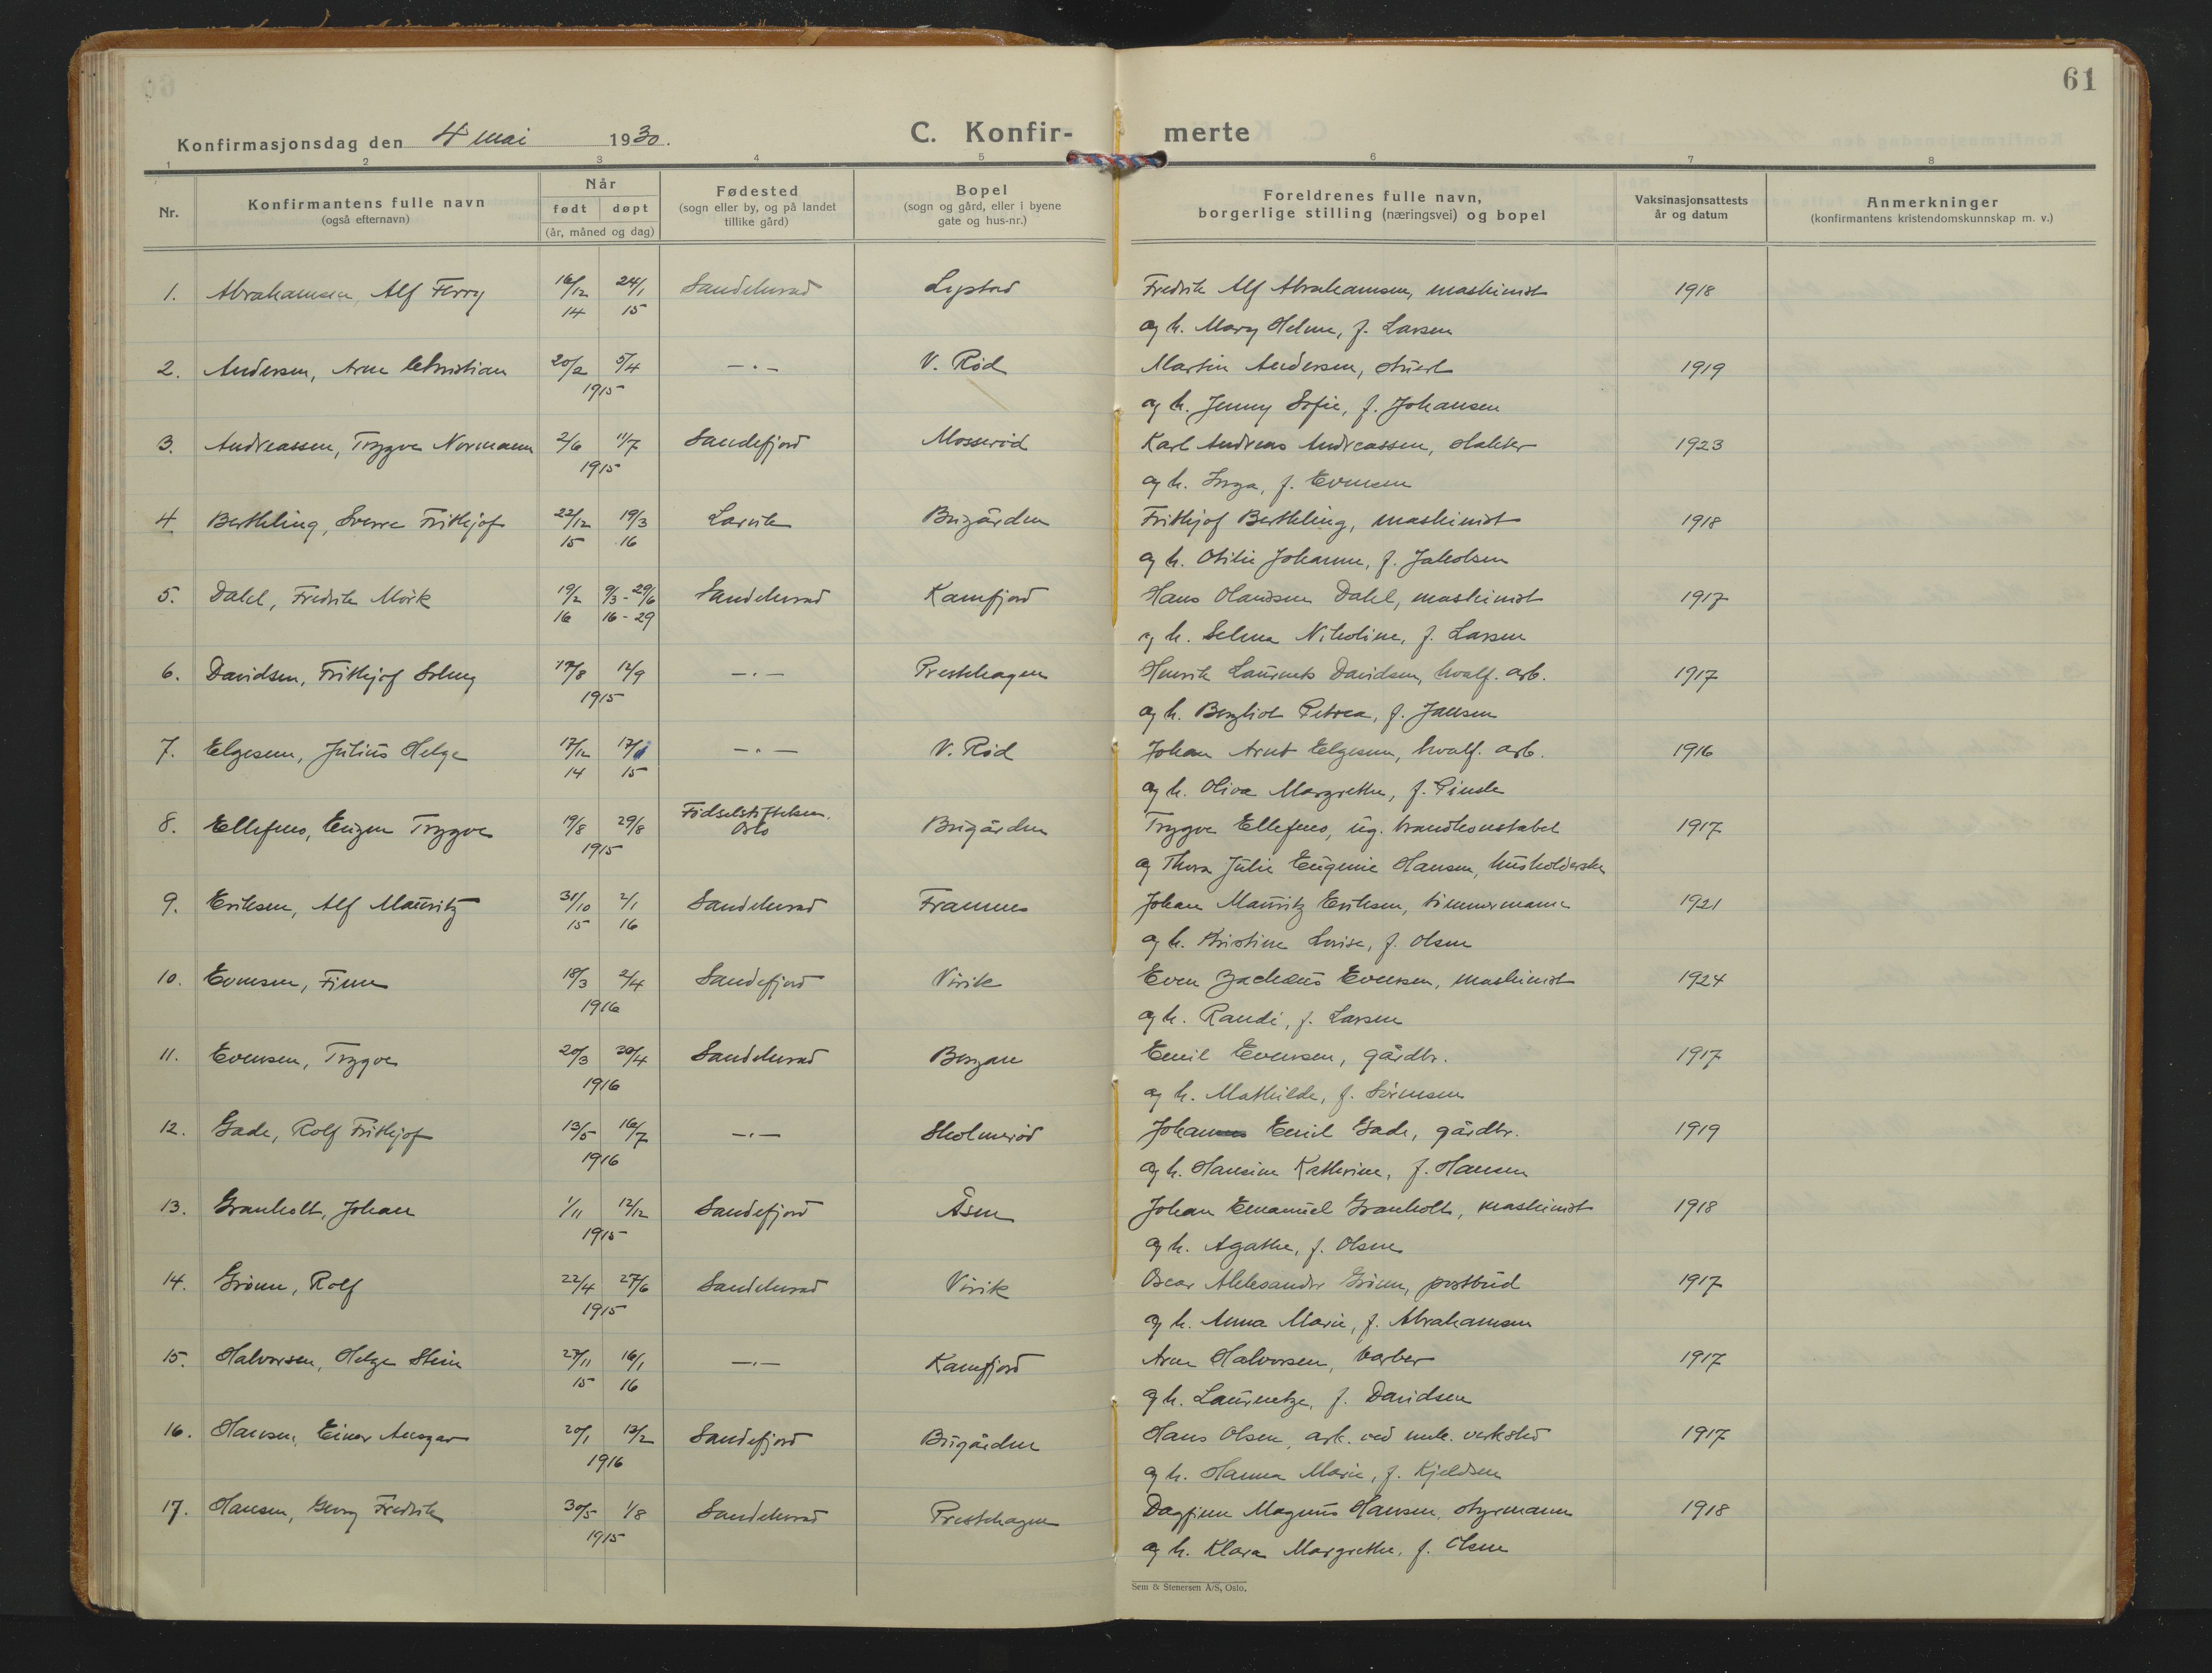 61
Konfirmasjonsdag den 4 mai 1930.
C. Konfir- merte
1 2 3 4 5 6 7 8
Nr.
Konfirmantens fulle navn
(også efternavn)
Når
født døpt
(år, måned og dag)
Fødested
(sogn eller by, og på landet
tillike gård)
Bopel
(sogn og gård, eller i byene
gate og hus-nr.)
Foreldrenes fulle navn,
borgerlige stilling (næringsvei) og bopel
Vaksinasjonsattests
år og datum
Anmerkninger
(konfirmantens kristendomskunnskap m. v.)
1. Abrahamsen, Alf Ferry 16/12 24/1 Sandeherad Lystad Fredrik Alf Abrahamsen, maskinist 1918
14 15 og h. Mary Helene, f. Larsen
2. Andersen, Arne Christian 20/2 5/4 -.- V. Rød Martin Andersen, stuert 1919
1915 og h. Jenny Sofie, f. Johansen
3. Andreassen, Trygve Normann 2/6 11/7 Sandefjord Mosserød Karl Andreas Andreassen, slakter 1923
1915 og h. Inga, f. Evensen
4. Berthling, Sverre Frithjof 22/12 19/3 Larvik Bugården Frithjof Berthling, maskinist 1918
15 16 og h. Otilie Johanne, f. Jakobsen
5. Dahl, Fredrik Mørk 19/2 9/3-29/6 Sandeherad Kamfjord Hans Olaussen Dahl, maskinist 1917
16 16-29 og h. Selma Nikoline, f. Larsen
6. Davidsen, Frithjof Solung 17/8 12/9 -.- Prestehagen Henrik Laurents Davidsen, hvalf. arb. 1917
1915 og h. Bergliot Petrea, f. Jansen
7. Elgesem, Julius Helge 17/12 17/1 -.- V. Rød Johan Arnt Elgesem, hvalf. arb. 1916
14 15 og h. Oliva Margrethe, f. Pinsle
8. Ellefsen, Eugen Trygve 19/8 29/8 Fødselstiftelsen, Oslo Bugården Trygve Ellefsen, ug. brandkonstabel 1917
1915 og Thora Julie Eugenie Hansen, husholderske
9. Eriksen, Alf Mauritz 31/10 2/1 Sandeherad Framnes Johan Mauritz Eriksen, timmermann 1921
15 16 og h. Kristine Lovise, f. Olsen
10. Evensen, Finn 18/3 2/4 Sandefjord Virik Even Zachæus Evensen, maskinist 1924
1916 og h. Randi, f. Larsen
11. Evensen, Trygve 20/3 30/4 Sandeherad Bergan Emil Evensen, gårdbr. 1917
1916 og h. Mathilde, f. Sørensen
12. Gade, Rolf Frithjof 13/5 16/7 -.- Skolmerød Johannes Emil Gade, gårdbr. 1919
1916 og h. Hansine Kathrine, f. Hansen
13. Granholt, Johan 1/11 12/12 Sandefjord Åsen Johan Emanuel Granholt, maskinist 1918
1915 og h. Agathe, f. Olsen
14. Grønn, Rolf 22/4 27/6 Sandeherad Virik Oscar Aleksander Grønn, postbud 1917
1915 og h. Anna Marie, f. Abrahamsen
15. Halvorsen, Helge Stein 27/11 16/1 -.- Kamfjord Arne Halvorsen, barber 1917
15 16 og h. Laurentze, f. Davidsen
16. Hansen, Einar Ansgar 20/1 13/2 Sandefjord Bugården Hans Olsen, arb. ved mek. verksted 1917
1916 og h. Hanna Marie, f. Kjeldsen
17. Hansen, Georg Fredrik 30/5 1/8 Sandeherad Prestehagen Dagfinn Magnus Hansen, styrmann 1918
1915 og h. Klara Margrethe, f. Olsen
Sem & Stenersen A/S, Oslo.